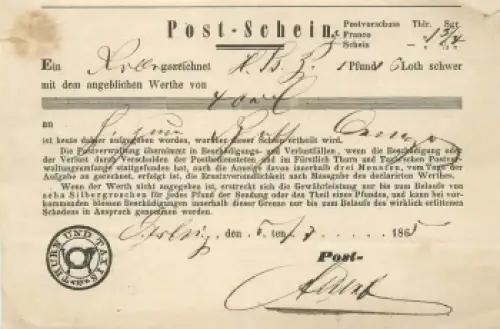 Post-Schein.
Postvorschuss Thlr. Sgr.
Franco
Schein
Ein gezeichnet H. B. 7. 1 Pfund 6 Loth schwer
mit dem angeblichen Werthe von
an
ist heute daher aufgegeben worden, worüber dieser Schein ertheilt wird.
Die Postverwaltung übernimmt in Beschädigungs- und Verlustfällen, wenn die Beschädigung oder
der Verlust durch Verschulden der Postbediensteten und im Fürstlich Thurn und Taxis'schen Postver-
waltungsumfange stattgefunden hat, auch die Anzeige davon innerhalb drei Monaten, vom Tage der
Aufgabe an gerechnet, erfolgt ist, die Ersatzverbindlichkeit nach Massgabe des declarirten Werthes.
Wenn der Werth nicht angegeben ist, erstreckt sich die Gewährleistung nur bis zum Belaufe von
zehn Silbergroschen für jedes Pfund der Sendung oder des Theil eines Pfundes, und kann bei vor-
kommenden blossen Beschädigungen innerhalb dieser Grenze nur bis zum Belaufe des wirklich erlittenen
Schadens in Anspruch genommen werden.
den 5 ten 7 1865
THURN UND TAXIS
Post-